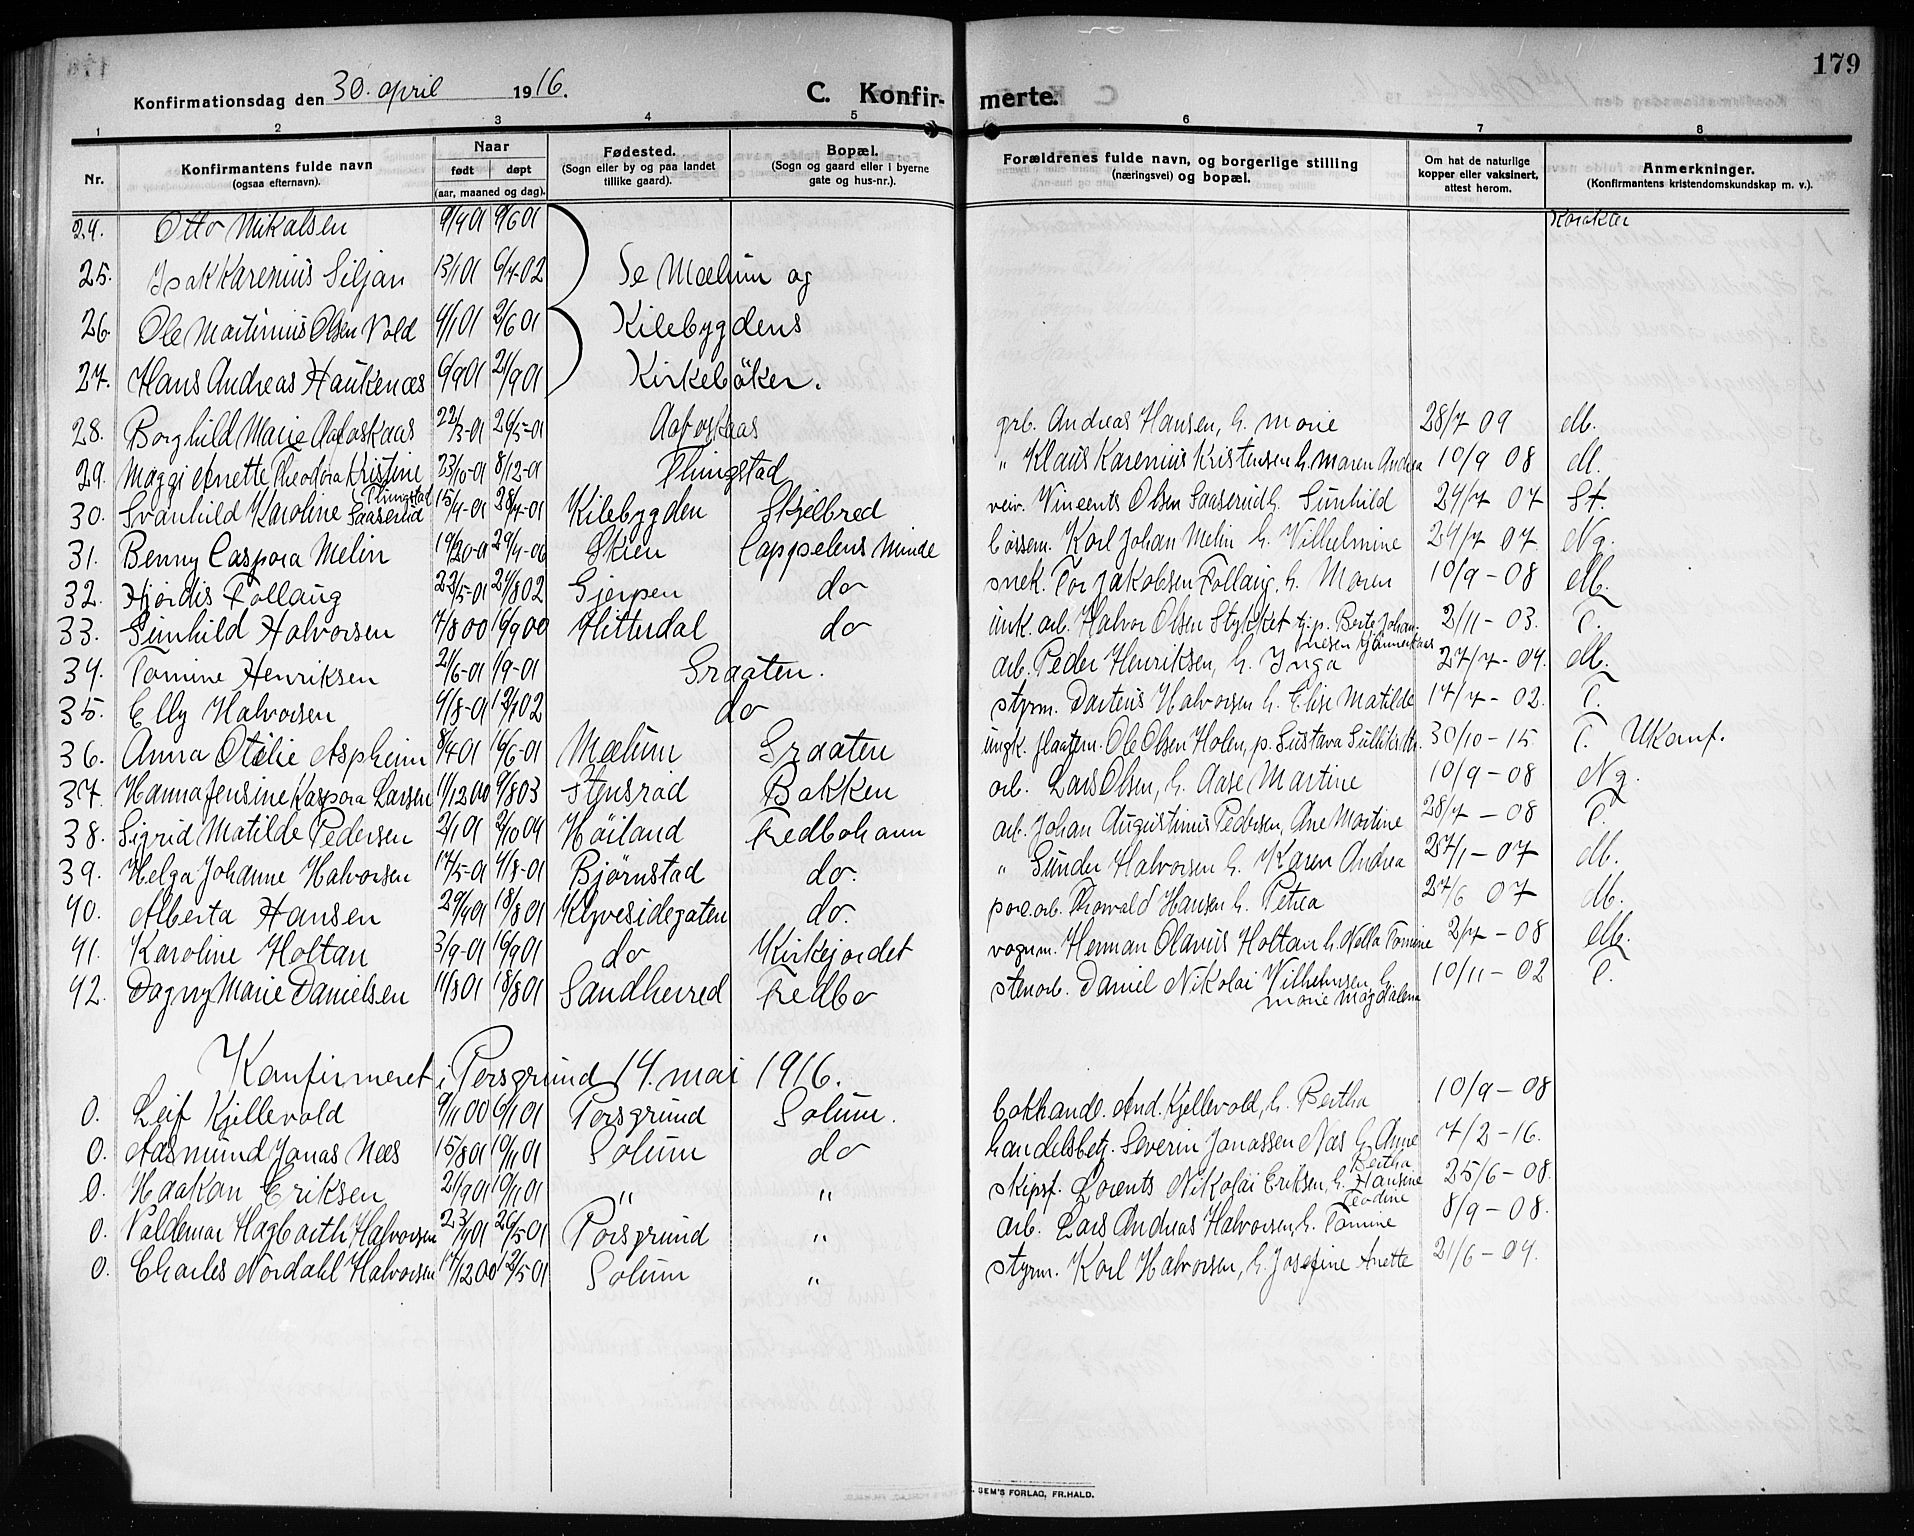 179
Konfirmationsdag den 30. april 1916.
C. Konfir- merte.
1 2 3 4 5 6 7 8
Nr.
Konfirmantens fulde navn
(ogsaa efternavn).
Naar
født døpt
(aar, maaned og dag).
Fødested.
(Sogn eller by og paa landet
tillike gaard).
Bopæl.
(Sogn og gaard eller i byerne
gate og hus-nr.).
Forældrenes fulde navn, og borgerlige stilling
(næringsvei) og bopæl.
Om hat de naturlige
kopper eller vaksinert,
attest herom.
Anmerkninger.
(Konfirmantens kristendomskundskap m. v.).
Karakter
24. Otto Mikalsen 9/4 01 9/6 01
25. Isak Karenius Siljan 13/1 01 6/4-02 Se Mælum og
26. Ole Martinius Olsen Vold 4/1 01 2/6 01 Kilebygdens
27. Hans Andreas Haukenæs 6/9 01 21/9 01 Kirkebøker.
28. Borghild Marie Aafoskaas 22/3-01 26/5-01 Aafoskaas grb. Andreas Hansen, h. Marie 28/7 09 M.
29. Maggi Anette Theodora Kristine Flingstad 23/10-01 8/12-01 Flingstad " Klaus Karenius Kristensen h. Maren Andrea 10/9 08 M.
30. Svanhild Karoline Saaserud 15/4-01 28/4-01 Kilebygden Skjelbred veiv. Vincents Olsen Saaserud h. Gunhild 24/7 07 St.
31. Benny Caspora Melin 29/4-06 Skien Cappelens Minde børsem. Karl Johan Melin h. Vilhelmine 24/7 07. Ng.
32. Hjørdis Follaug 22/5-01 24/8 02 Gjerpen do snek. Tor Jakobsen Follaug, h. Maren 10/9-08 M.
33. Gunhild Halvorsen 7/8 00 16/9 00 Hitterdal do unk. arb. Halvor Olsen Stykket t. p. Berte Johannesen 2/11-03. T.
34. Tomine Henriksen 21/6-01 1/9-01 Graaten. arb. Peder Henriksen, h. Inga 27/7-04. M.
35. Elly Halvorsen 4/8-01 12/1 02 do styrm. Dartens Halvorsen h. Elise Matilde 17/7-02. T.
36. Anna Otilie Aspheim 8/4 01 16/6-01 Mælum Graaten ungk. fløtem. Ole Olsen Holen, p. Gustava 30/10-15. T. Ukonf.
37. Hanna Jensine Kaspora Larsen 11/12 00 9/8 03 Stensrød Bakken arb. Lars Olsen, h. Aase Martine 10/9-08 Ng.
38. Sigrid Matilde Pedersen 2/1 01 2/10 04 Høiland Fredbohavn arb. Johan Augustinus Pedersen, Ane Martine 28/7-08 T.
39. Helga Johanne Halvorsen 17/5-01 4/8-01 Bjørnstad do. " Gunder Halvorsen h. Karen Andrea 27/1-07 M.
40. Alberta Hansen 29/4 01 18/8 01 Klyvesidegaten do. porc.arb. Thorvald Hansen h. Petrea 27/6 07 M.
41. Karoline Holtan 3/9-01 16/9 01 do Kirkejordet vognm. Herman Olavus Holtan h. Nella Tomine 2/7-08 M.
42. Dagny Marie Danielsen 11/3 01 18/8 01 Sandherred Fredbo stenarb. Daniel Nikolai Vilhelmsen h. Marie Magdalena 10/11-02 T.
Konfirmeret i Porsgrund 14. mai 1916.
0. Leif Kjellevold 9/11 00 6/1 01 Porsgrund Solum. bokhandl. And. Kjellevold, h. Bertha 10/9-08
0. Aasmund Jonas Næs 15/8 01 10/11 01 Solum do handelsbetj. Severin Jonassen Næs h. Anne Bertha 7/2-16.
0. Haakon Eriksen 21/9 01 10/11 01 " " skipsf. Lorents Nikolai Eriksen, h. Hansine Teodine 25/6-08.
0. Valdemar Hagbarth Halvorsen 23/4 01 26/5-01 Porsgrund " arb. Lars Andreas Halvorsen, h. Tomine 8/9-08.
0. Charles Nordahl Halvorsen 17/12 00 12/5 01 Solum " styrm. Karl Halvorsen, h. Josefine Anette 21/6-04.
SEM'S FORLAG, FR.HALD.